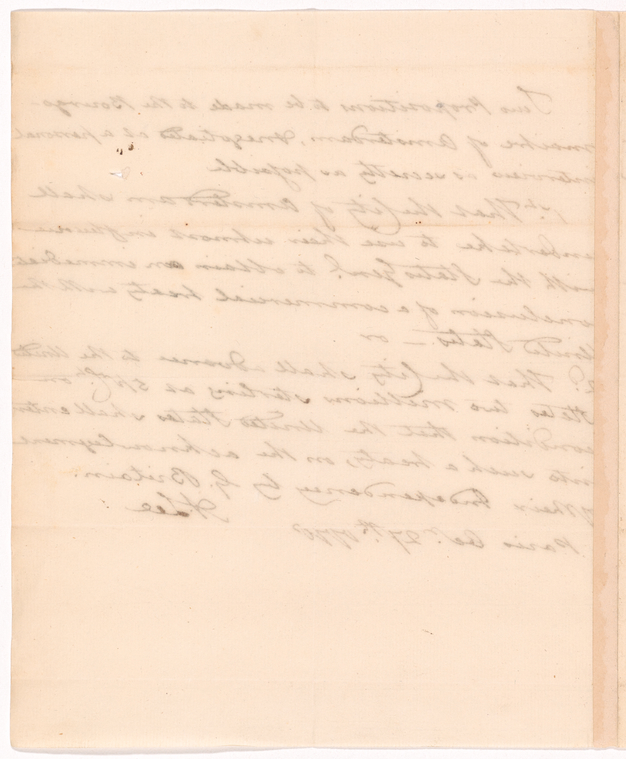 Two Propositions to be made to the Bourgo-
master of Amsterdam, & negotiated at a personal
interview as secretly as possible
1st. That the City of Amsterdam shall
undertake to use their utmost influence
with the States Genl. to obtain an immediate
conclusion of a commercial treaty with the
United States — or
2d. That the City shall advance to the United
States two millions sterling at 5 on
condition that the United States shall enter
into such a treaty, on the acknowlegment
of their Independency by G. Britain.
A Lee
Paris 27th. 1778